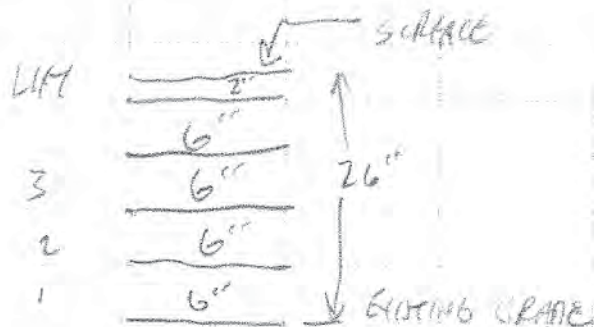 SURFACE
LIFT
2"
6"
3 6" 26"
2 6"
1 6" EXISTING GRADE